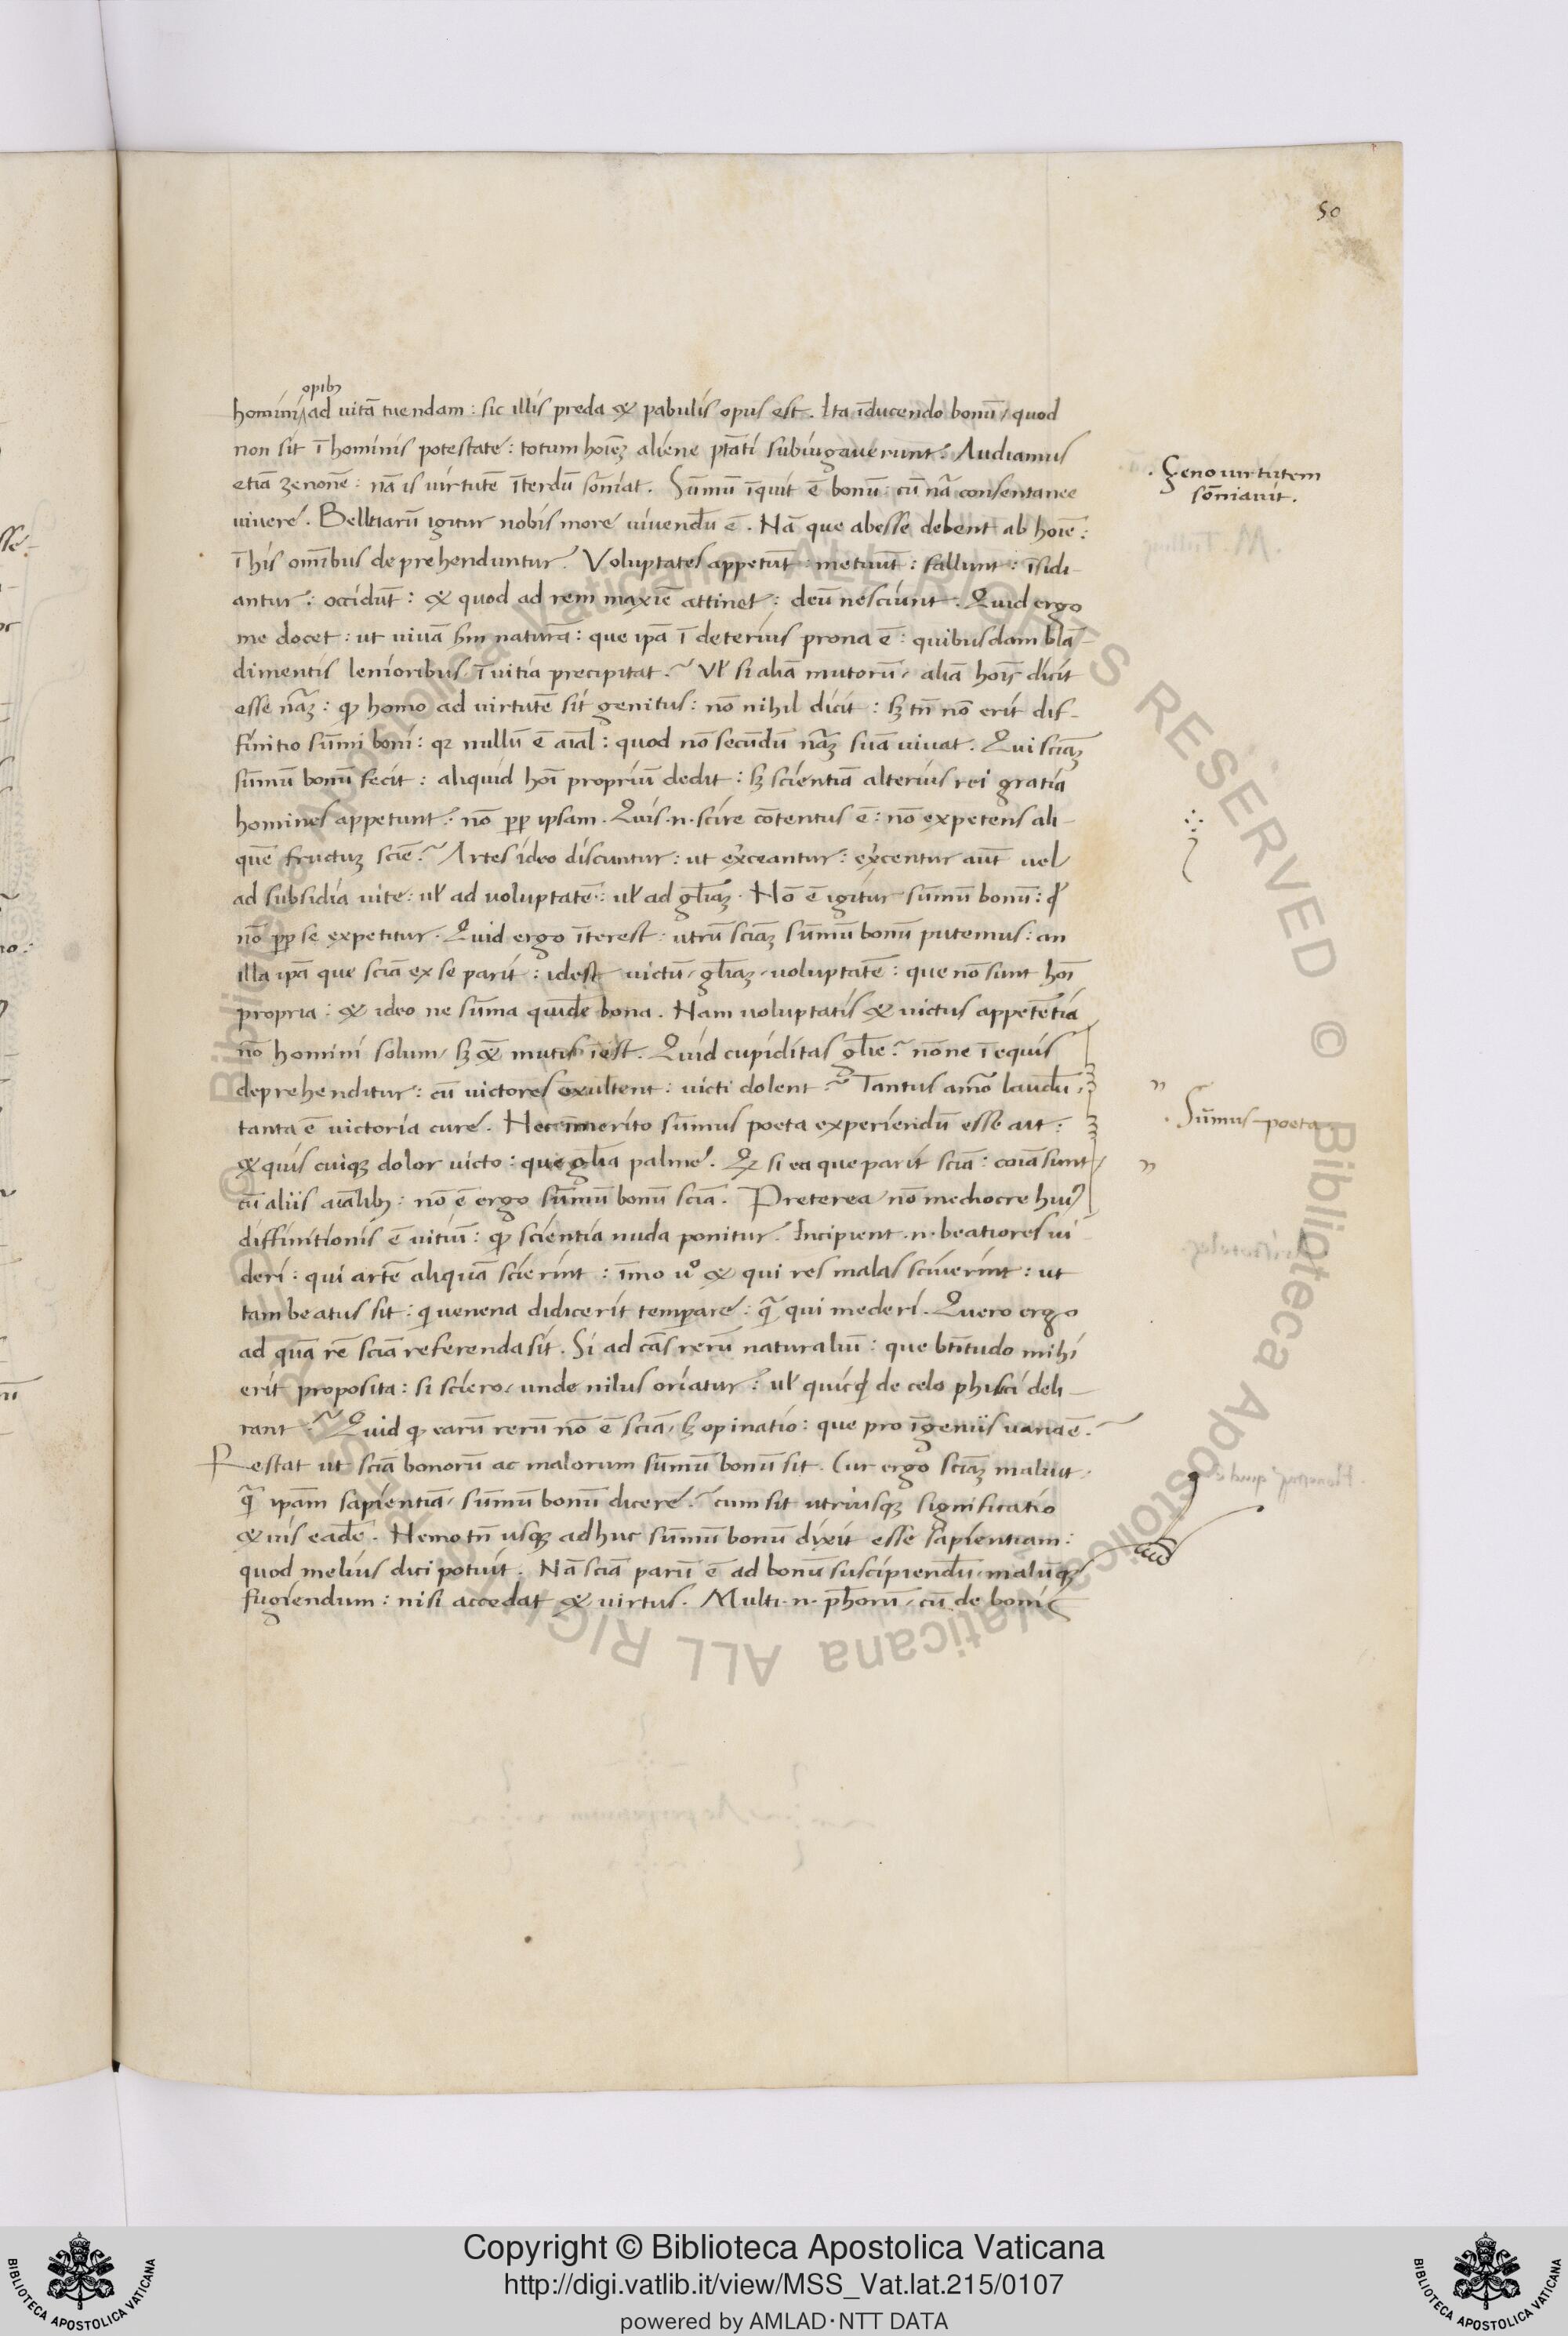 50
opibꝫ
hominiad uitā tuendam : sic illis preda & pabulis opus est . Ita īducendo bonū / quod
non sit ī hominis potestate : totum hoiēꝫ aliene ptāti subiugauerunt . Audiamus
etiā zenonē : nā is uirtutē īterdū sōniat . Sūmū īquit ē bonū : cū nā̄ consentanee
uiuere . Belluarū igitur nobis more uiuendū ē . Nā que abesse debent ab hoīe :
ī his omībus deprehenduntur . Voluptates appetūt : metuūt : fallunt : īsidi-
antur : occidūt : & quod ad rem maxīe attinet : deū nesciunt . Quid ergo
me docet : ut uiuā s̄m naturā : que ip̄a ī deterius prona ē : quibusdam blā-
dimentis lenioribus ī uitia precipitat . Vl̓ si aliā mutorū / aliā hoīs dicit
esse nāꝫ : qꝫ homo ad uirtutē sit genitus : nō nihil dicit : sꝫ tn̄ nō erit dif-
finitio sūmi boni : qꝛ nullū ē aīal : quod nō secūdū nāꝫ suā uiuat . Qui sciāꝫ
sūmū bonū fecit : aliquid hoī propriū dedit : sꝫ scientiā alterius rei gratia
homines appetunt : nō pp̄ ipsam . Quis .n. scire cōtentus ē : nō expetens ali-
quē fructuꝫ sciē ? Artes ideo discuntur : ut ex̓ceantur : ex̓centur aūt uel
ad subsidia uite : ul̓ ad uoluptatē : ul̓ ad gl̄iaꝫ . Nō ē igitur sūmū bonū : qđ
nō pp̄ se expetitur . Quid ergo īterest : utrū sciāꝫ sūmū bonū putemus : an
illa ip̄a que sciā ex se parit : idest uictū / gl̄iaꝫ / uoluptatē : que nō sunt hoī
propria : & ideo ne sūma quidē bona . Nam uoluptatis & uictus appetētia
nō homini solum / sꝫ & mutis iēst . Quid cupiditas gl̄ie ? nōne ī equis
deprehenditur : cū uictores exultent : uicti dolent ? Tantus amō laudū :
tanta ē uictoria cure . Nec īmerito sūmus poeta experiendū esse ait :
& quis cuiqꝫ dolor uicto : que gl̄ia palme . Qꝫ si ea que parit sciā : coīa sunt
cū aliis aīalibꝫ : nō ē ergo sūmū bonū sciā . Preterea nō mediocre huiꝰ
diffinitionis ē uitiū : qꝫ scientia nuda ponitur . Incipient .n. beatiores ui
deri : qui artē aliquā scierint : īmo uº & qui res malas sciuerint : ut
tam beatus sit : qui uenena didicerit temperare : quā qui mederi . Quero ergo
ad quā rē sciā referenda sit . Si ad cās rerū naturaliū : que bt̄itudo mihi
erit proposita : si sciero / unde nilus oriatur : ul̓ quicqđ de celo phisici deli-
rant ? Quid qꝫ earū rerū nō ē sciā / sꝫ opinatio : que pro īgeniis uaria ē .
Restat ut sciā bonorū ac malorum sūmū bonū sit . Cur ergo sciāꝫ maluit
quā ip̄am sapientiā / sūmū bonū dicere ? cum sit utriusqꝫ significatio
& uis eadē . Nemo tn̄ usqꝫ adhuc sūmū bonū dixit esse sapientiam :
quod melius dici potuit . Nā sciā parū ē ad bonū suscipiendū / malūqꝫ
fugiendum : nisi accedat & uirtus . Multi .n. ph̄orū / cū de bonis
. Zeno uirtutem
sōniauit .
. Sūmus poeta
© Biblioteca Apostolica Vaticana ALL RIGHTS RESERVED
Copyright © Biblioteca Apostolica Vaticana
http://digi.vatlib.it/view/MSS_Vat.lat.215/0107
powered by AMLAD·NTT DATA
BIBLIOTECA APOSTOLICA VATICANA
BIBLIOTECA APOSTOLICA VATICANA